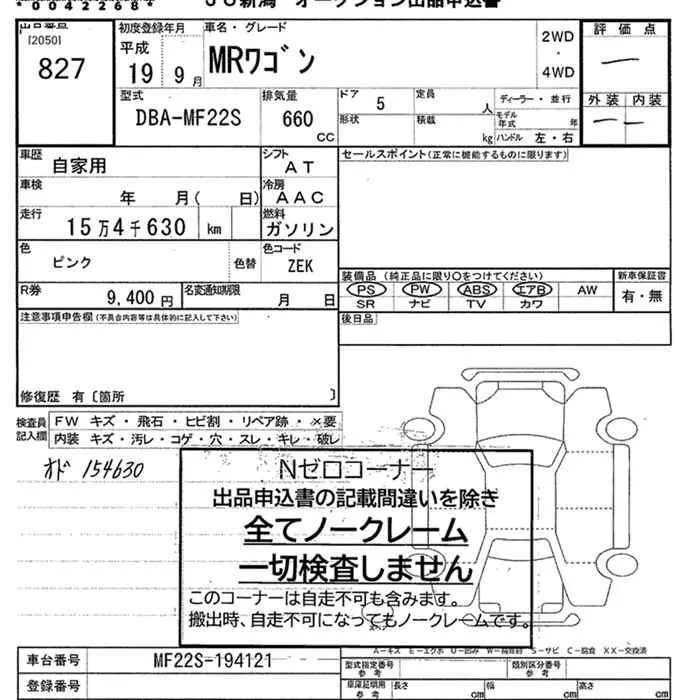 *00422684*
JU新潟 オークション出品申込書
出品番号
[2050]
827
初度登録年月
平成
19 9月
車名・グレード
MRワゴン
2WD
・
4WD
評価点
―
外装 内装
― ―
型式
DBA-MF22S
排気量
660
CC
ドア
5
定員
人
形状
積載
kg
ディーラー・並行
モデル年式
年
ハンドル 左・右
車歴
自家用
シフト
AT
車検
年 月( 日)
冷房
AAC
走行
15万4千630 km
燃料
ガソリン
色
ピンク
色替
色コード
ZEK
R券
9,400 円
名変通知期限
月 日
セールスポイント(正常に機能するものに限ります)
装備品 (純正品に限り○をつけてください)
PS PW ABS エアB AW
SR ナビ TV カワ
新車保証書
有・無
注意事項申告欄(不具合内容等は具体的に記入して下さい)
修復歴 有〔箇所 〕
後日品
検査員
記入欄
FW キズ・飛石・ヒビ割・リペア跡・×要
内装 キズ・汚レ・コゲ・穴・スレ・キレ・破レ
オド 154630
Nゼロコーナー
出品申込書の記載間違いを除き
全てノークレーム
一切検査しません
このコーナーは自走不可も含みます。
搬出時、自走不可になってもノークレームです。
スペア
A－キズ E－エクボ U－凹み W－補修跡 S－サビ C－腐食 XX－交換済
車台番号
MF22S-194121
登録番号
型式指定番号
参考
類別区分番号
参考
車庫証明用
参考
長さ
cm
幅
cm
高さ
cm